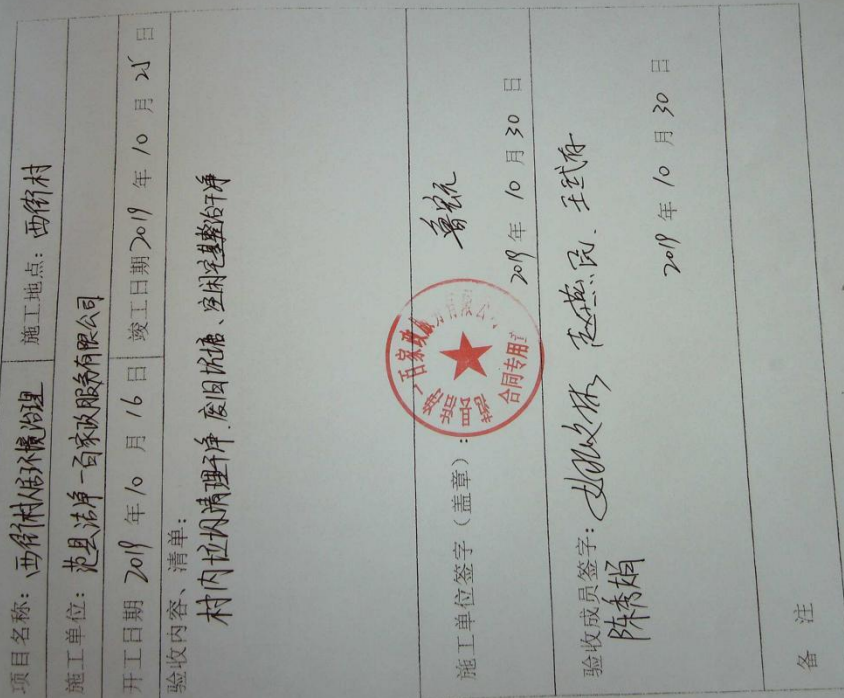 项目名称：西街村人居环境治理 施工地点：西街村
施工单位：范县洁净一百家政服务有限公司
开工日期 2019 年 10 月 16 日 竣工日期 2019 年 10 月 25 日
验收内容、清单：
村内垃圾清理干净、废旧坑塘、空闲宅基整治干净
施工单位签字（盖章）：
合同专用章
2019 年 10 月 30 日
验收成员签字：
陈秀娟
2019 年 10 月 30 日
备 注